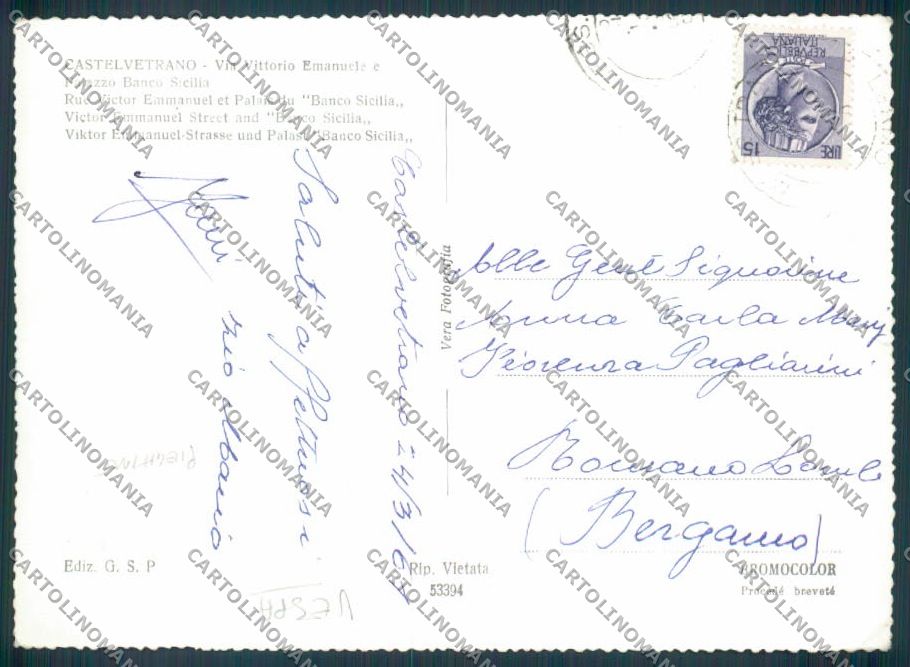 CASTELVETRANO - Via Vittorio Emanuele e
Palazzo Banco Sicilia
Rue Victor Emmanuel et Palais du "Banco Sicilia,,
Victor Emmanuel Street and "Banco Sicilia,,
Viktor Emmanuel-Strasse und Palast "Banco Sicilia,,
Castelvetrano 24/3/6
Saluti affettuosi
zio Albano
REPVBBLICA
ITALIANA
LIRE 15
Alle Gent Signorine
Anna Carla Mary
Fiorenza Pagliarini
Romano Lomb
(Bergamo)
Vera Fotografia
PIEGHINE
VESPA
Ediz. G. S. P
Rip. Vietata
53394
BROMOCOLOR
Procédé breveté
CARTOLINOMANIA